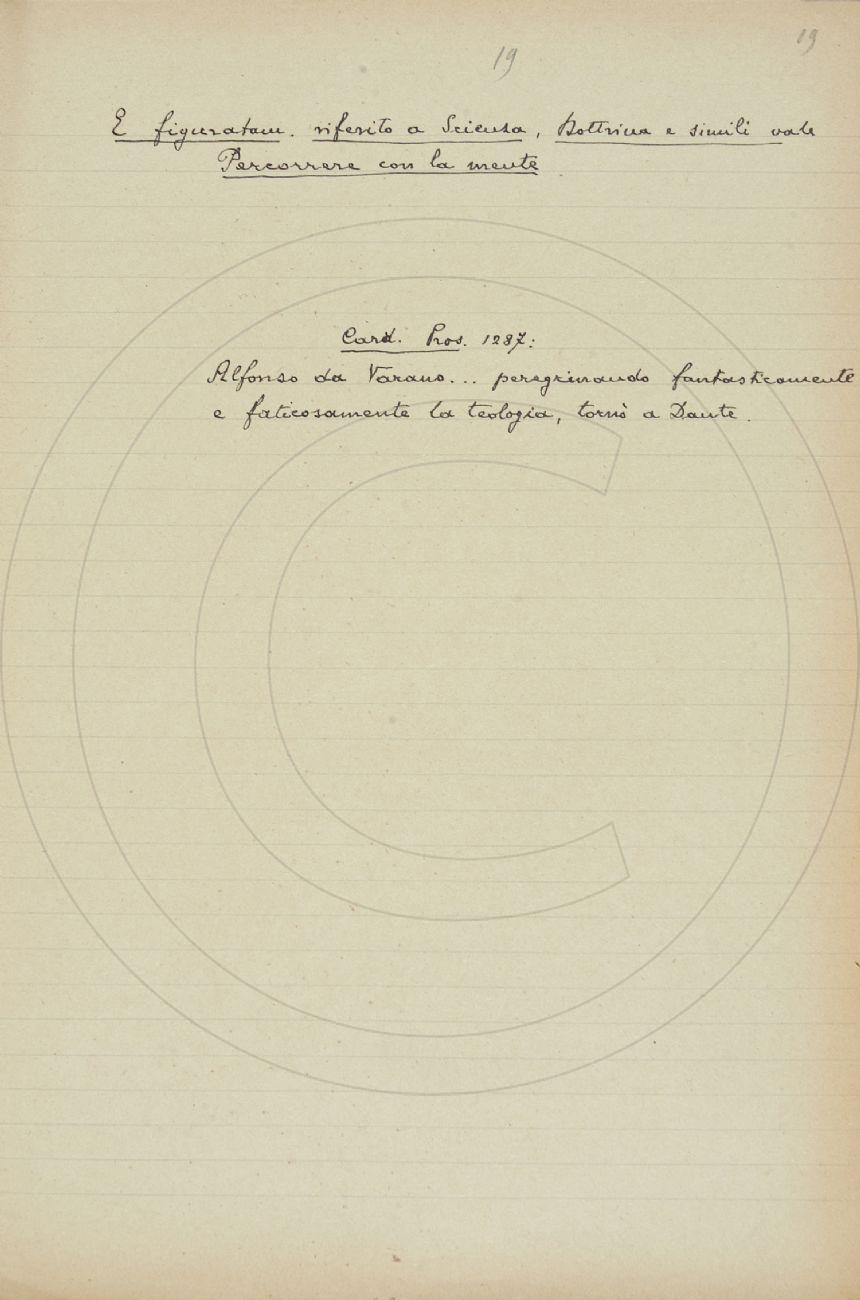 19
19
E figuratam. riferito a Scienza, Dottrina e simili vale
Percorrere con la mente
Card. Pros. 1287:
Alfonso da Varano... peregrinando fantasticamente
e faticosamente la teologia, tornò a Dante.